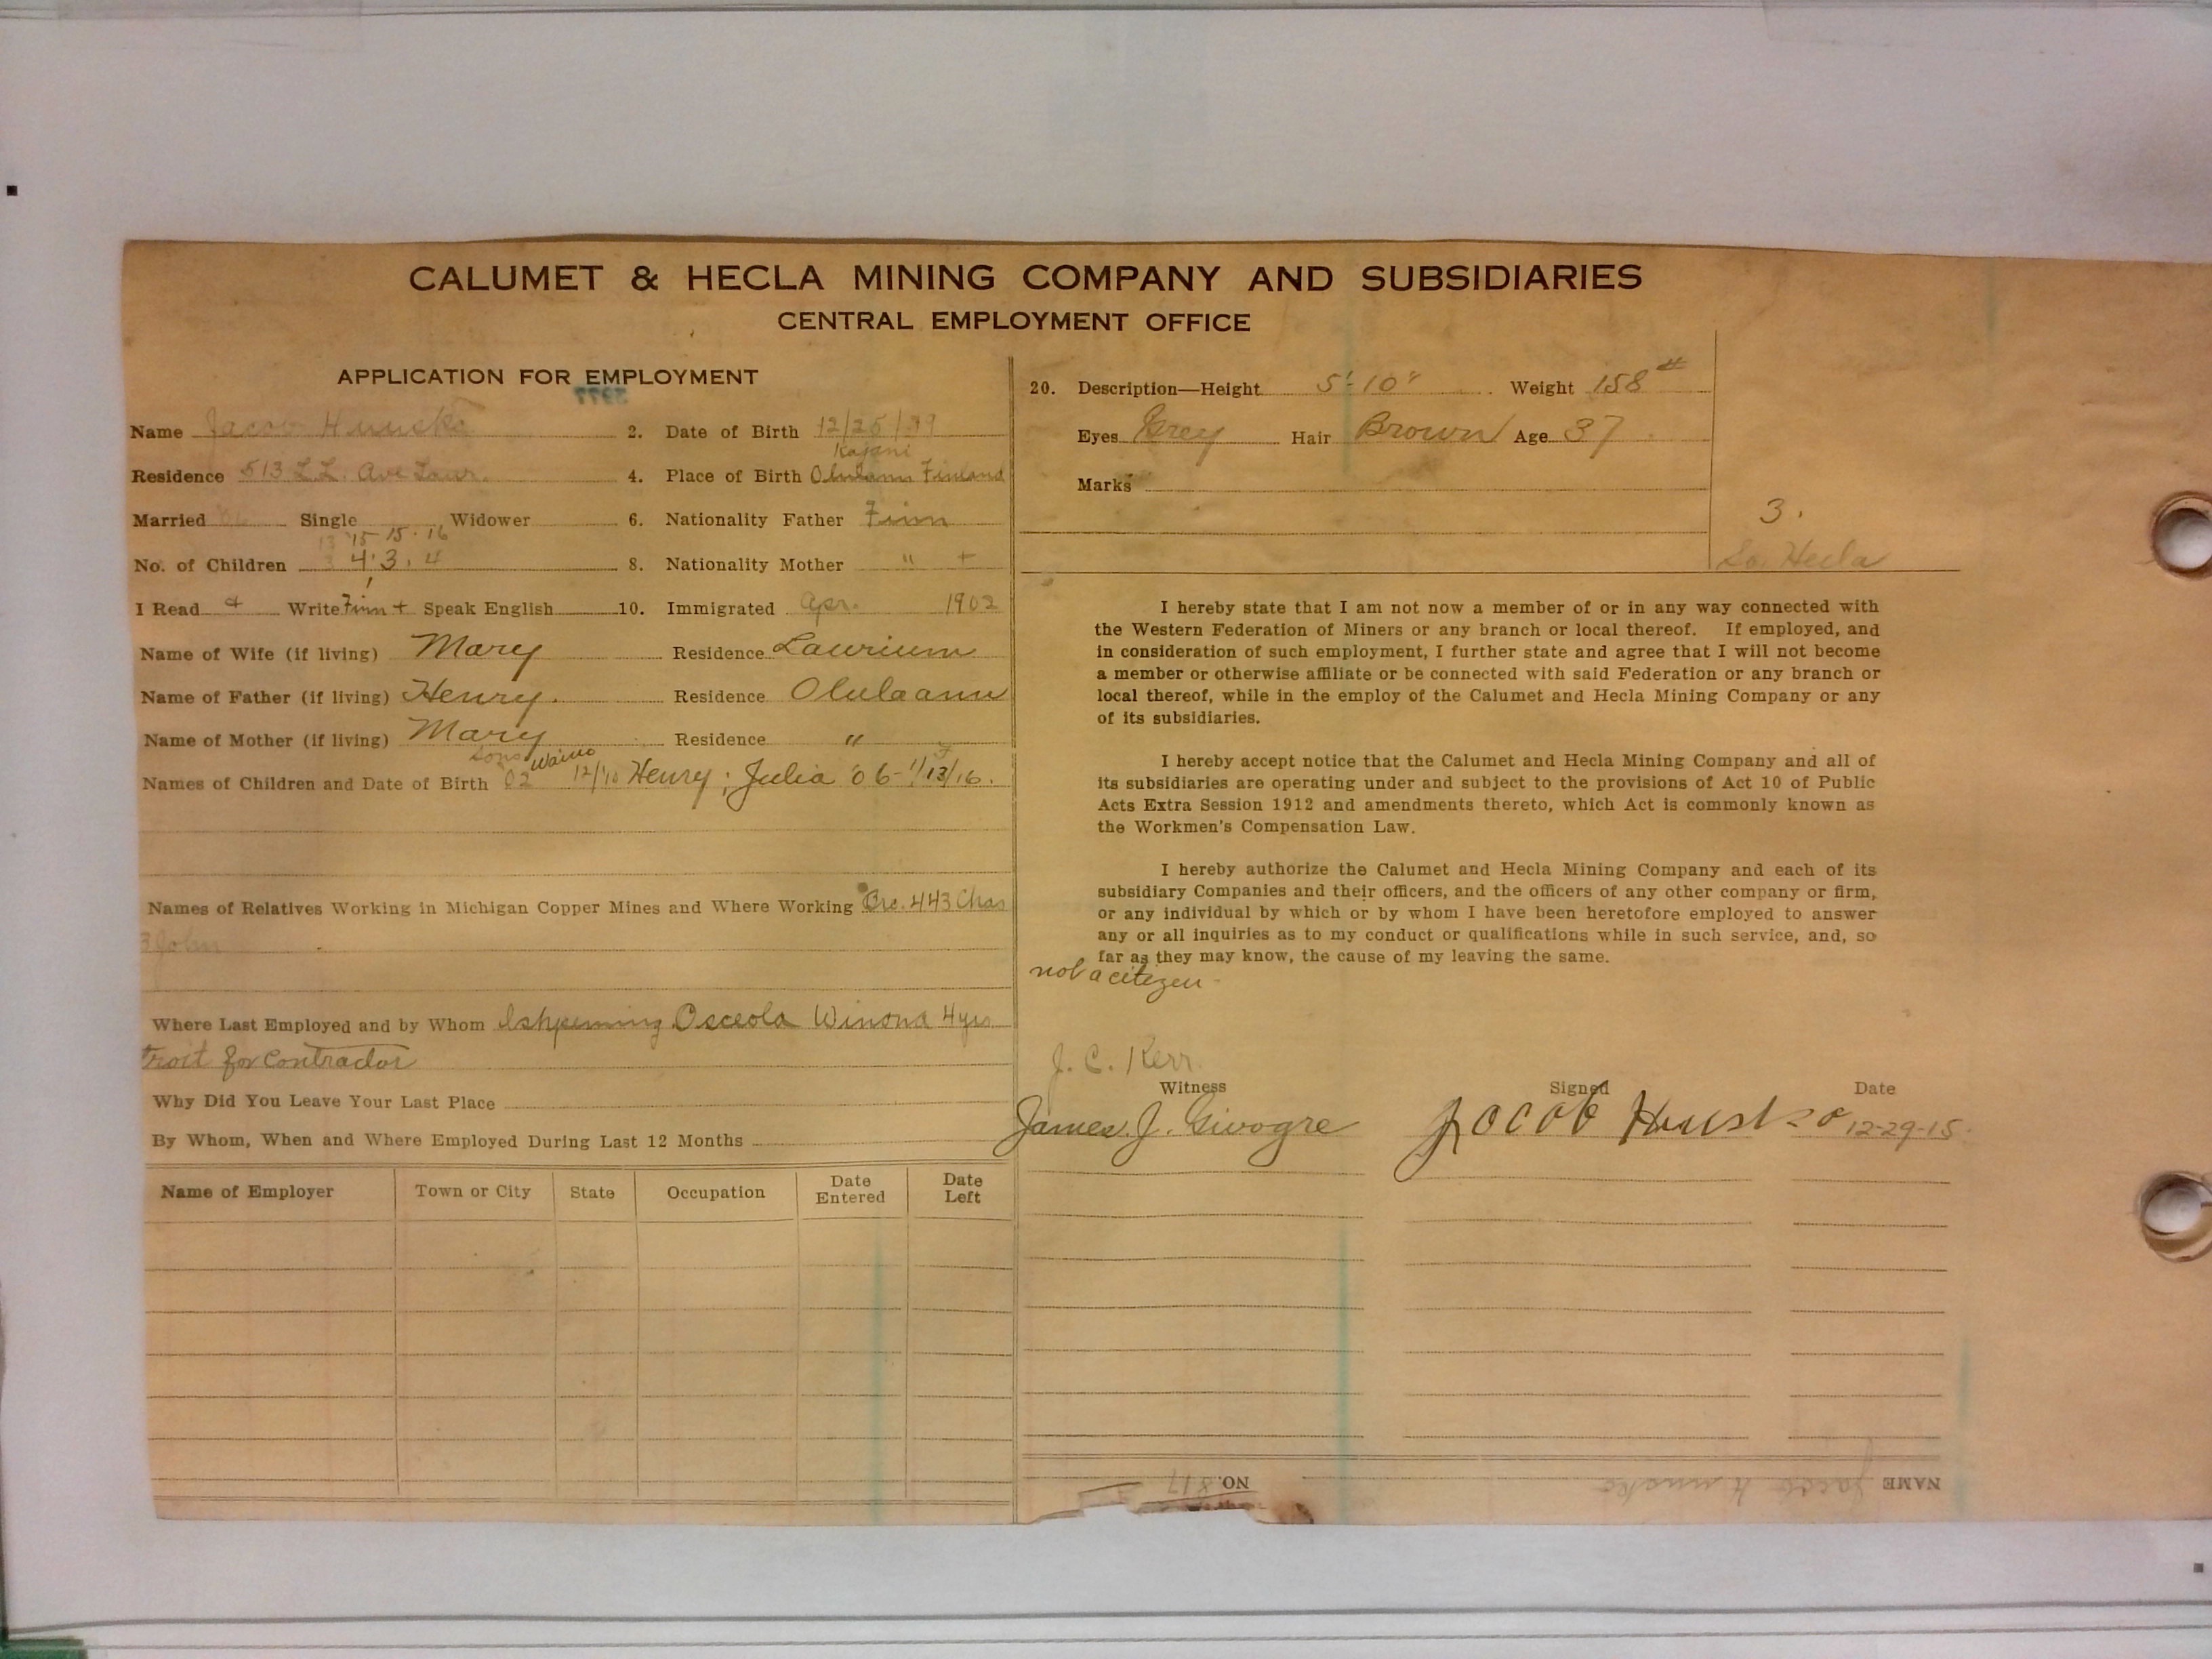 CALUMET & HECLA MINING COMPANY AND SUBSIDIARIES
CENTRAL EMPLOYMENT OFFICE
APPLICATION FOR EMPLOYMENT
Name Jacob 2. Date of Birth 12/25/
Kajani
Residence 513 L.L. Ave Laur. 4. Place of Birth Finland
Married Single Widower 6. Nationality Father Finn
13 '15 15 · 16
No. of Children 3 4 · 3 . 4 8. Nationality Mother " +
I Read + Write Finn + Speak English 10. Immigrated Apr. 1902
Name of Wife (if living) Mary Residence Laurium
Name of Father (if living) Henry. Residence Olulaann
Name of Mother (if living) Mary Residence "
Sons Waino
Names of Children and Date of Birth 02 12/'10 Henry; Julia '06 - 1/13/16.
Names of Relatives Working in Michigan Copper Mines and Where Working 443 Chas
3 John
Where Last Employed and by Whom Ishpeming Osceola Winona 4 yrs
for Contractor
Why Did You Leave Your Last Place
By Whom, When and Where Employed During Last 12 Months
Name of Employer Town or City State Occupation Date Entered Date Left
20. Description—Height 5'-10" Weight 158 #
Eyes Grey Hair Brown Age 37
Marks
3.
So. Hecla
I hereby state that I am not now a member of or in any way connected with
the Western Federation of Miners or any branch or local thereof. If employed, and
in consideration of such employment, I further state and agree that I will not become
a member or otherwise affiliate or be connected with said Federation or any branch or
local thereof, while in the employ of the Calumet and Hecla Mining Company or any
of its subsidiaries.
I hereby accept notice that the Calumet and Hecla Mining Company and all of
its subsidiaries are operating under and subject to the provisions of Act 10 of Public
Acts Extra Session 1912 and amendments thereto, which Act is commonly known as
the Workmen's Compensation Law.
I hereby authorize the Calumet and Hecla Mining Company and each of its
subsidiary Companies and their officers, and the officers of any other company or firm,
or any individual by which or by whom I have been heretofore employed to answer
any or all inquiries as to my conduct or qualifications while in such service, and, so
far as they may know, the cause of my leaving the same.
not a citizen
J. C. Kerr
Witness Signed Date
James J. Jacob 12-29-15
NAME Jacob NO. 817